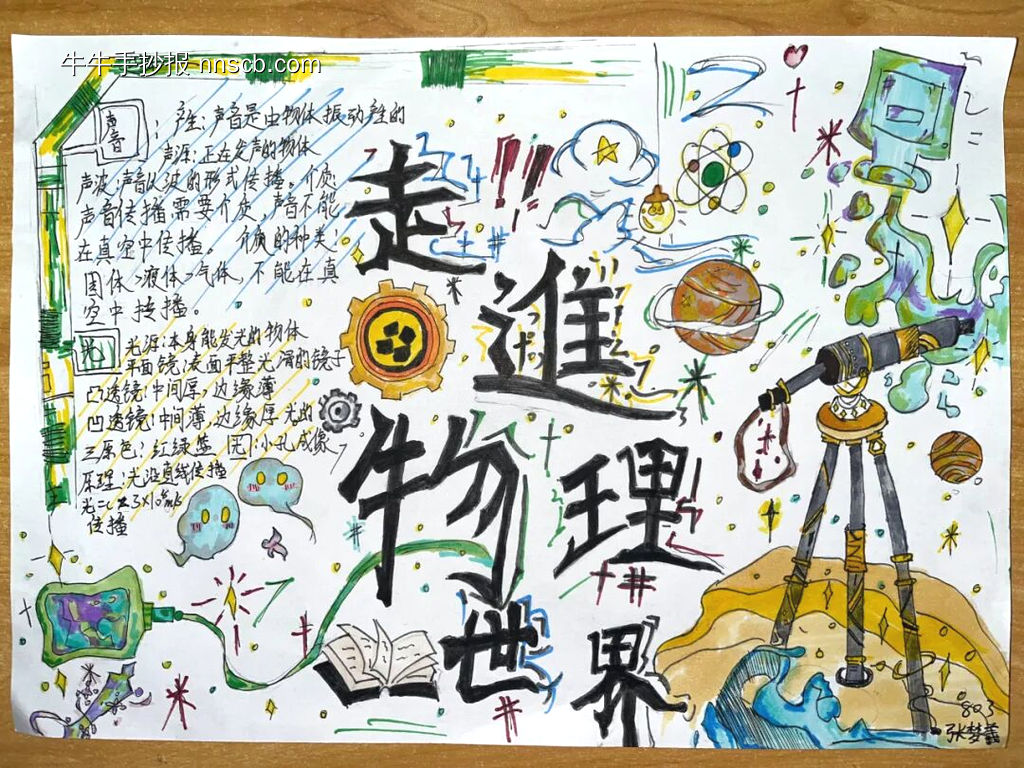 牛牛手抄报 nnscb.com
声音:产生:声音是由物体振动产的
声源:正在发声的物体
声波:声音以波的形式传播。介质:
声音传播需要介质,声音不能
在真空中传播。 介质的种类:
固体>液体>气体,不能在真
空中传播。
光 光源:本身能发光的物体
平面镜:表面平整光滑的镜子
凸透镜:中间厚,边缘薄
凹透镜:中间薄,边缘厚 光的
三原色:红绿蓝 小孔成像
原理:光沿直线传播
传播
走進
物理
世界
803
张梦